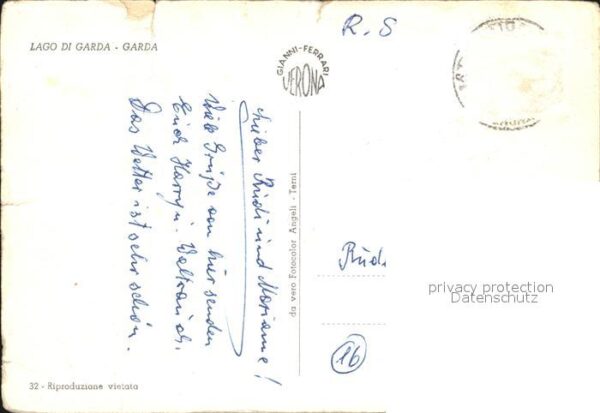 LAGO DI GARDA - GARDA
R. S
GIANNI-FERRARI
VERONA
Lieber Rüdi und Marianne!
Viele Grüße von hier senden
Euch Harry u. Waltraud.
Das Wetter ist sehr schön.
da vero Fotocolor Angeli - Terni
Rüd
privacy protection
Datenschutz
16
32 - Riproduzione vietata